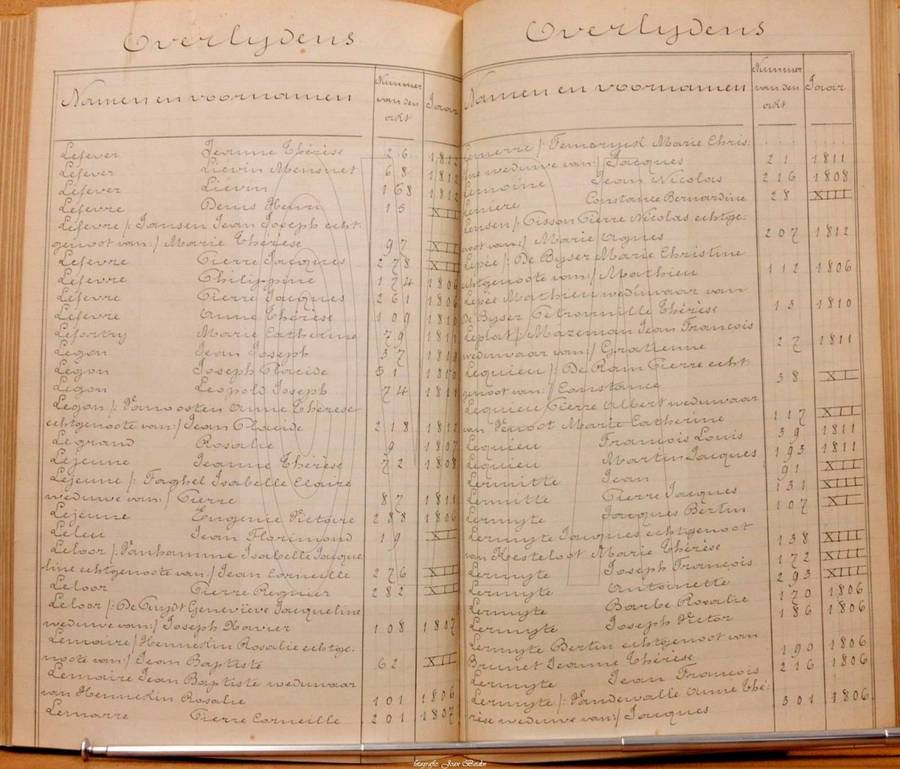 Overlydens
Namen en voornamen Nummer van den akt Jaar
Lefever Jeanne Thérèse 26 1812
Lefever Liévin Mensuet 68 1812
Lefever Liévin 168 1812
Lefevre Denis Henri 15 XII
Lefevre /: Jansen Jean Joseph echt-
genoot van:/ Marie Thérèse 97 XII
Lefevre Pierre Jacques 278 XII
Lefevre Philippine 174 1806
Lefevre Pierre Jacques 261 1806
Lefevre Anne Thérèse 109 1810
Lefortry Marie Catherine 79 1811
Legon Jean Joseph 37 1810
Legon Joseph Placide 51 1810
Legon Leopold Joseph 74 1811
Legon /: Vanoosten Anne Thérèse
echtgenoote van:/ Jean Placide 218 1812
Legrand Rosalie 9 1807
Lejeune Jeanne Thérèse 72 1808
Lejeune /: Faghel Isabelle Claire
weduwe van:/ Pierre 87 1811
Lejeune Eugenie Victoire 288 1806
Leleu Jean Florimond 19 XII
Leloor /: Vanhamme Isabelle Jacque-
line echtgenoote van:/ Jean Corneille 276 XII
Leloor Pierre Regnier 282 XII
Leloor /: De Cuydt Geneviève Jacqueline
weduwe van:/ Joseph Xavier 108 1807
Lemaire /: Hennekin Rosalie echtge-
noote van:/ Jean Baptiste 62 XII
Lemaire Jean Baptiste weduwaar
van Hennekin Rosalie 101 1806
Lemarre Pierre Corneille 201 1807
Overlydens
Namen en voornamen Nummer van den akt Jaar
Lemerre /: Marie Chris-
tine weduwe van:/ Jacques 21 1811
Lemoine Jean Nicolas 216 1808
Leniere Constance Bernardine 28 XIII
Lensen /: Cisson Pierre Nicolas echtge-
noot van:/ Marie Agnes 207 1812
Lepée /: De Byser Marie Christine
echtgenoote van:/ Mathieu 112 1806
Lepée Mathieu weduwaar van
De Byser Petronille Thérèse 13 1810
Leplat /: Mazeman Jean Francois
weduwaar van:/ Gratienne 27 1811
Lequieu /: De Ram Pierre echt-
genoot van:/ Constance 38 XII
Lequieu Pierre Albert weduwaar
van Marie Catherine 117 XII
Lequieu Francois Louis 39 1811
Lequieu Martin Jacques 193 1811
Lermitte Jean 91 XII
Lermitte Pierre Jacques 131 XIII
Lermyte Jacques Bertin 107 XI
Lermyte Jacques echtgenoot
van Kesteloot Marie Thérèse 138 XIII
Lermyte Joseph Francois 172 XIII
Lermyte Antoinette 293 XIII
Lermyte Barbe Rosalie 170 1806
Lermyte Joseph Victor 186 1806
Lermyte Bertin echtgenoot van
Brunet Jeanne Thérèse 190 1806
Lermyte Jean Francois 216 1806
Lermyte /: Vandewalle Anne Thé-
rèse weduwe van:/ Jacques 301 1806